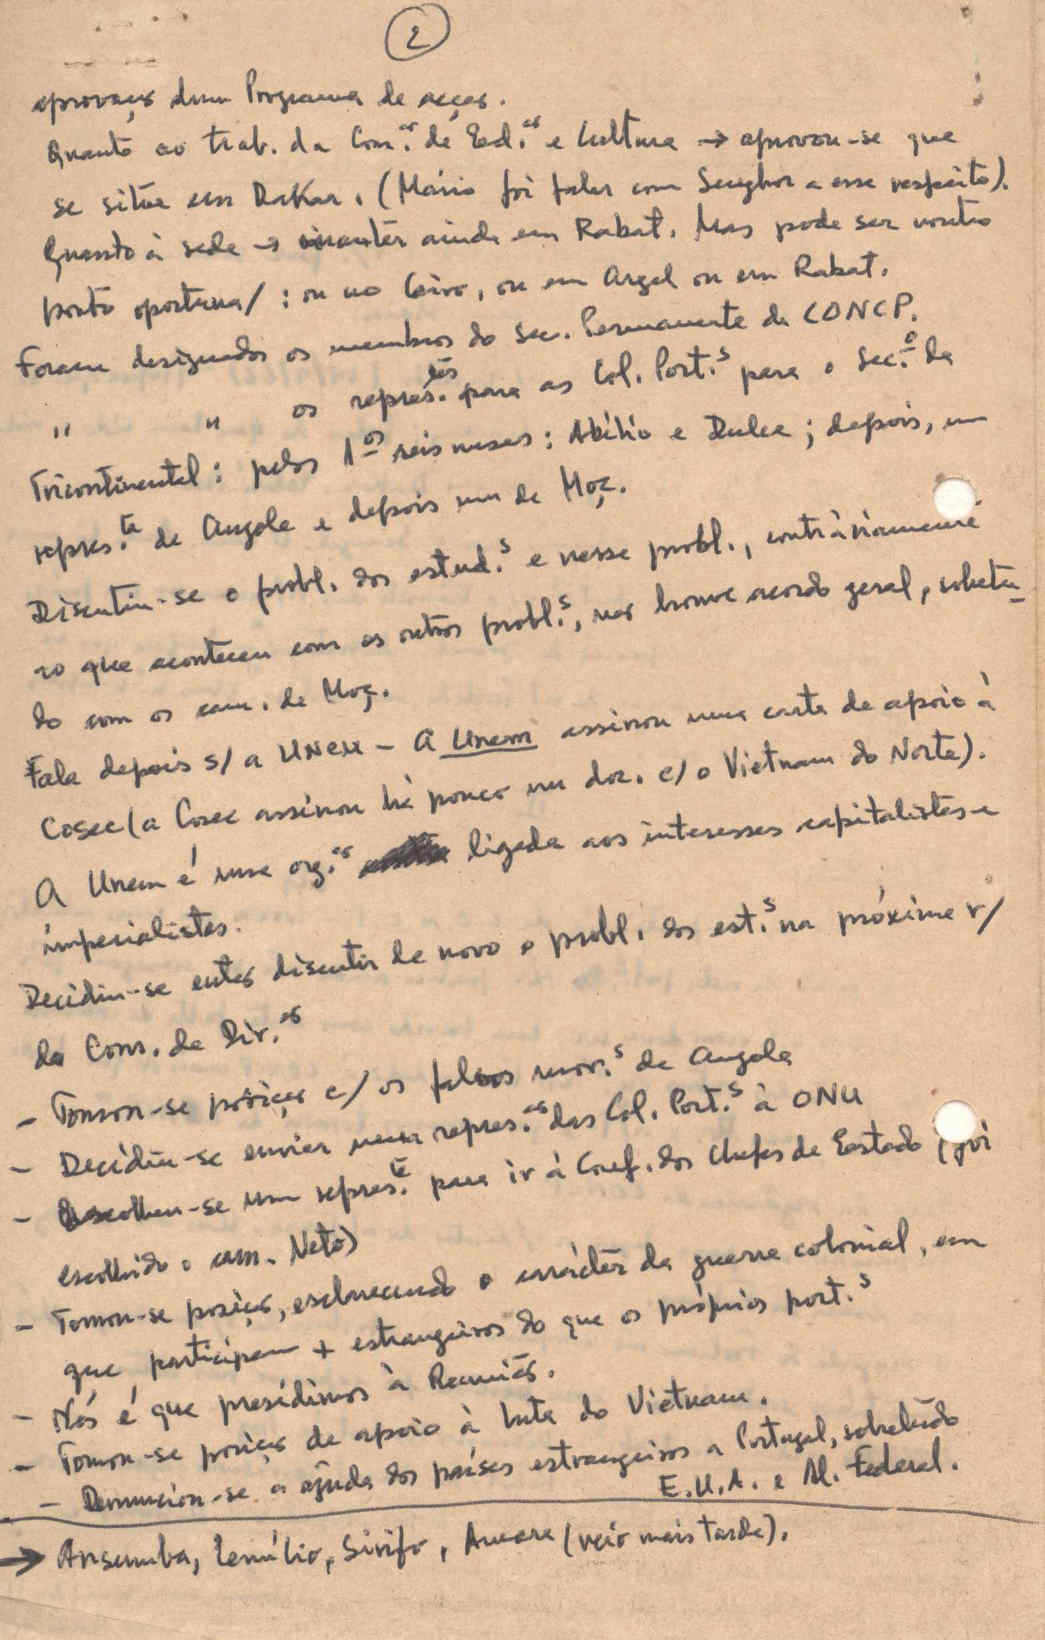 2
aprovação dum Programa de acção.
Quanto ao trab. da Com.ão de Ed.ão e Cultura → aprovou-se que
se situe em Dakar. (Mário foi falar com Senghor a esse respeito).
Quanto à sede → manter ainda em Rabat. Mas pode ser noutro
ponto oportuna/ : ou no Cairo, ou em Argel ou em Rabat.
Foram designados os membros do Sec. Permanente da CONCP.
" " os repres.tes para as Col. Port.s para o Sec.o da
Tricontinental: pelos 1os seis meses: Abílio e Dulce; depois, um
repres.te de Angola e depois um de Moç.
Discutiu-se o probl. dos estud.s e nesse probl., contràriamente
ao que aconteceu com os outros probl.s, não houve acordo geral, sobretu-
do com os cam. de Moç.
Fala depois s/ a UNEM - A Unem assinou uma carta de apoio à
Cosec (a Cosec assinou há pouco um doc. c/ o Vietnam do Norte).
A Unem é uma org.ão ligada aos interesses capitalistas e
imperialistas.
Decidiu-se então discutir de novo o probl. dos est.s na próxima r/
do Cons. de Dir.ão
- Tomou-se posição c/ os falsos mov.s de Angola
- Decidiu-se enviar uma repres.ão das Col. Port.s à ONU
- Escolheu-se um repres.te para ir à Conf. dos Chefes de Estado (foi
escolhido o cam. Neto)
- Tomou-se posição, esclarecendo o carácter da guerra colonial, em
que participam + estrangeiros do que os próprios port.s
- Nós é que presidimos à Reunião.
- Tomou-se posição de apoio à luta do Vietnam.
- Denunciou-se a ajuda dos países estrangeiros a Portugal, sobretudo
E.U.A. e Al. Federal.
→ Ansumba, Sirifo, (veio mais tarde).